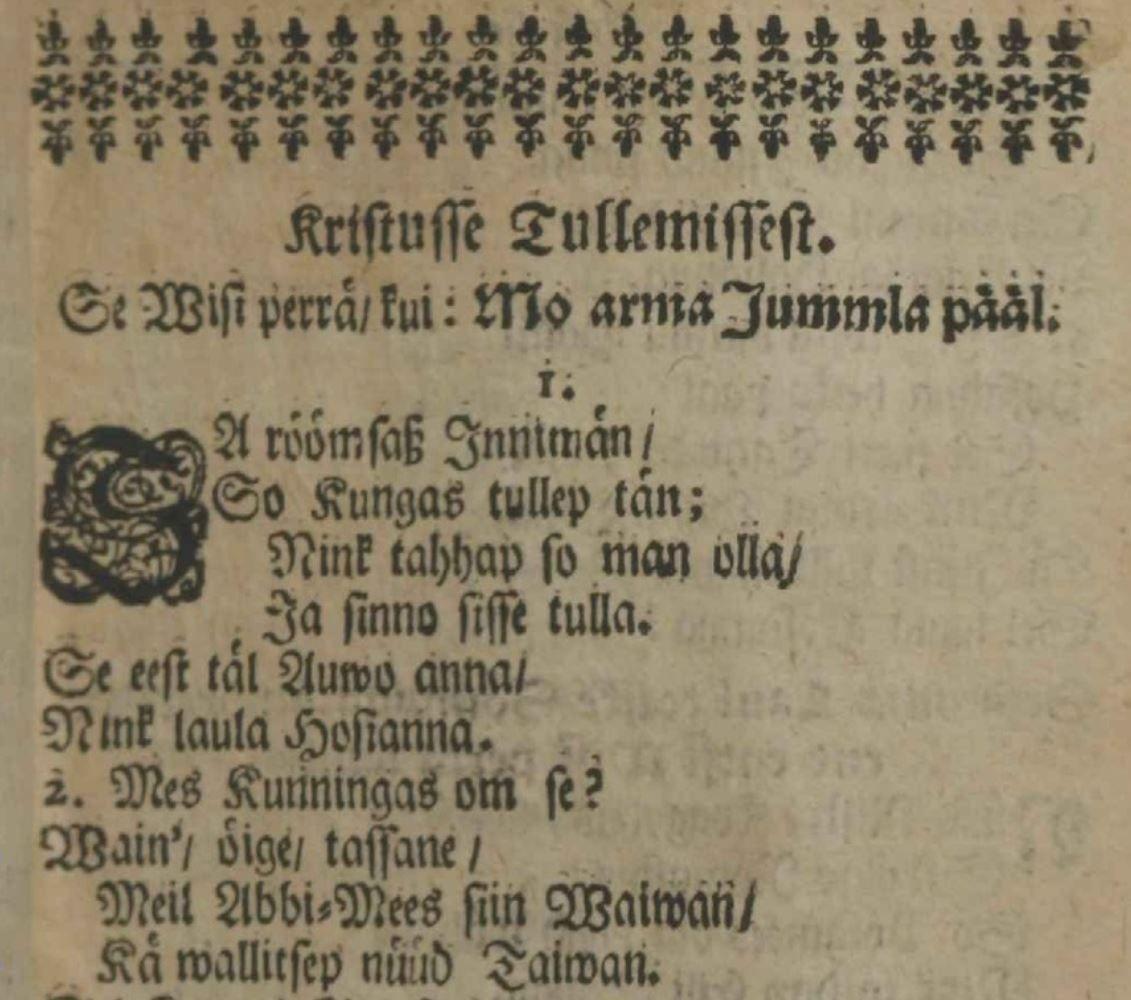 Kristusse Tullemissest.
Se Wisi perrä/ kui: Mo arma Jummla pääl.
1.
SA röömsaß Innimän/
So Kungas tullep tän;
Nink tahhap so man olla/
Ja sinno sisse tulla.
Se eest täl Auwo anna/
Nink laula Hosianna.
2. Mes Kunningas om se?
Wain'/ öige/ tassane/
Meil Abbi-Mees siin Waiwan/
Kä wallitsep nüüd Taiwan.